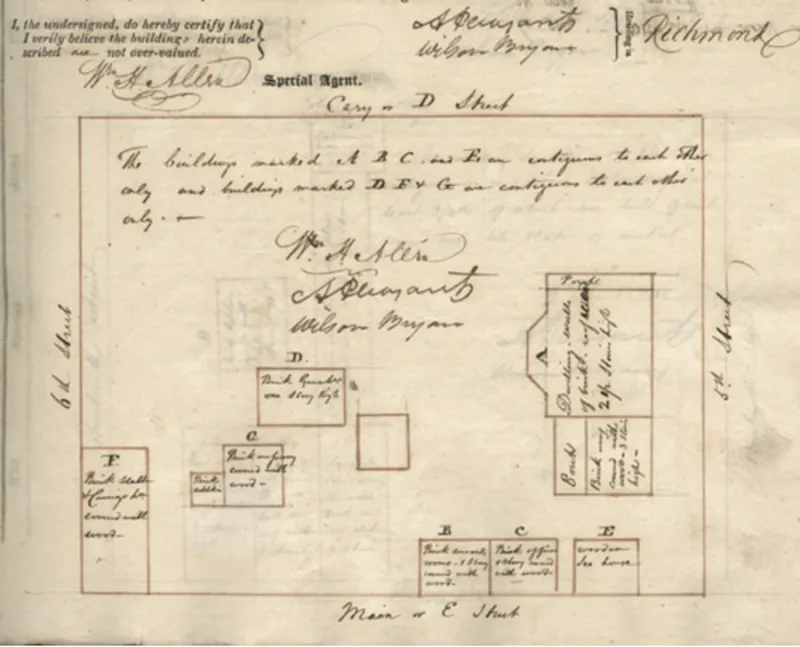 I, the undersigned, do hereby certify that
I verily believe the buildings herein de-
scribed are not over-valued.
A Pleasants
Wilson Bryan
Residing in
Richmond
Wm H. Allen Special Agent.
Cary or D Street
The buildings marked A B C and E are contiguous to each other
only and buildings marked D F & G are contiguous to each other
only.
Wm H. Allen
A Pleasants
Wilson Bryan
6th Street
5th Street
Porch
A
Dwelling walls
of brick
2 Stories high
Porch
Brick wing
covered with
wood 2 Stories
high
D.
Brick
one Story high
G
Brick
covered with
wood
Brick
F.
Brick Stable
& Carriage Ho
covered with
wood
B
Brick servants
rooms Story
covered with
wood
C
Brick office
Story covered
with wood
E
wooden
Ice house
Main or E Street